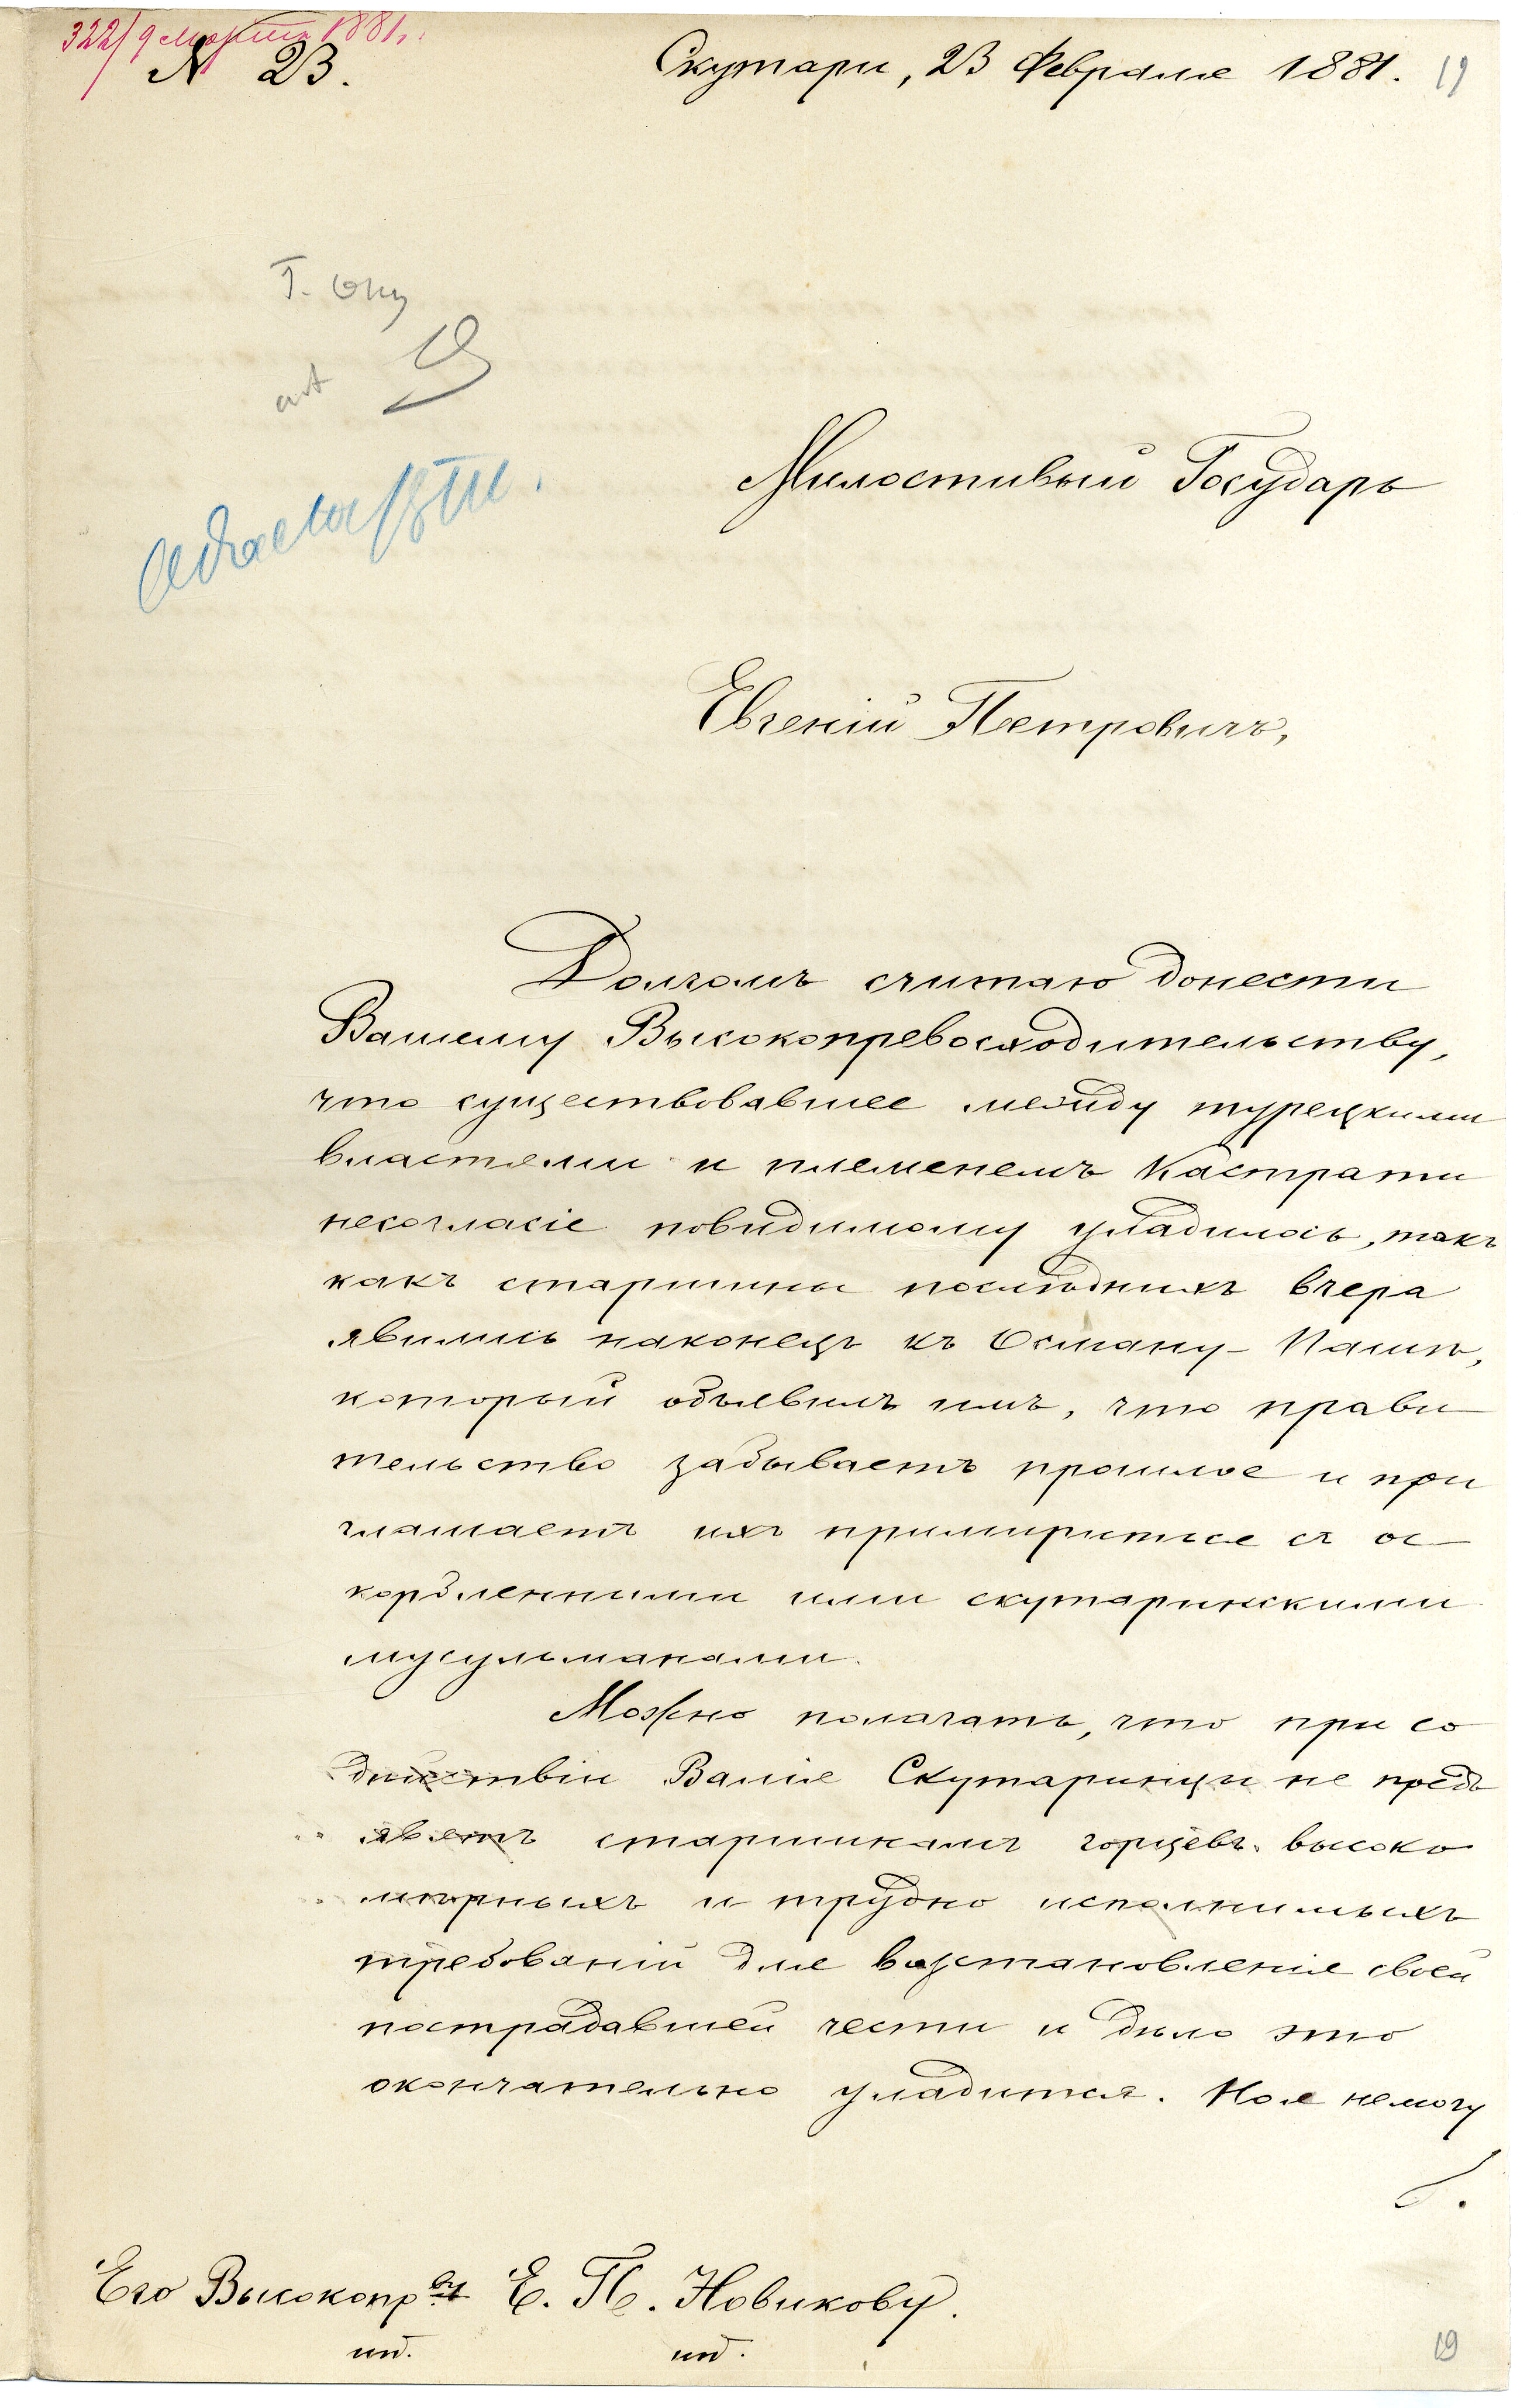 322/9 марта 1881 г.
№ 23.
Скутари, 23 Февраля 1881.
19
Г. Ону
Милостивый Государь
Евгеній Петровичъ,
Долгомъ считаю донести
Вашему Высокопревосходительству,
что существовавшее между турецкими
властями и племенемъ Кастрати
несогласіе повидимому уладилось, такъ
какъ старшины последнихъ вчера
явились наконецъ къ Осману-Пашѣ,
который объявилъ имъ, что прави
тельство забываетъ прошлое и при
глашаетъ ихъ примириться съ ос
корбленными ими скутаринскими
мусульманами.
Можно полагать, что при со
дѣйствіи Валія Скутаринцы не предъ
явятъ старшинамъ горцевъ высоко
мѣрныхъ и трудно исполнимыхъ
требованій для возстановленія своей
пострадавшей чести и дѣло это
окончательно уладится. Но я не могу
Его Высокопр-ву Е. П. Новикову.
ип. ип.
19